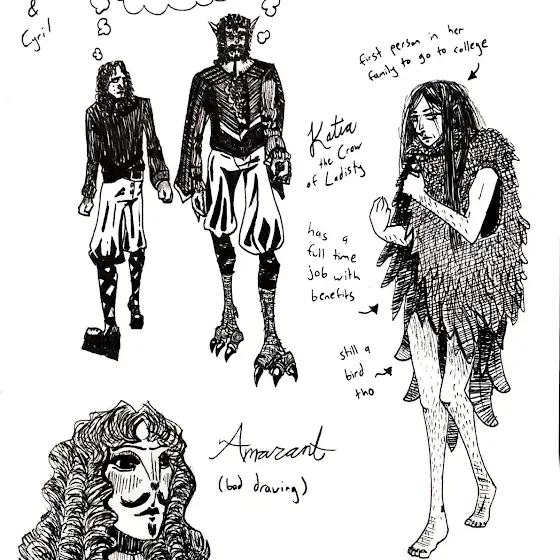 &
Cyril
first person in her
family to go to college
Katia
the Crow
of Lodisty
has a
full time
job with
benefits
still a
bird
tho
Amarant
(bad drawing)